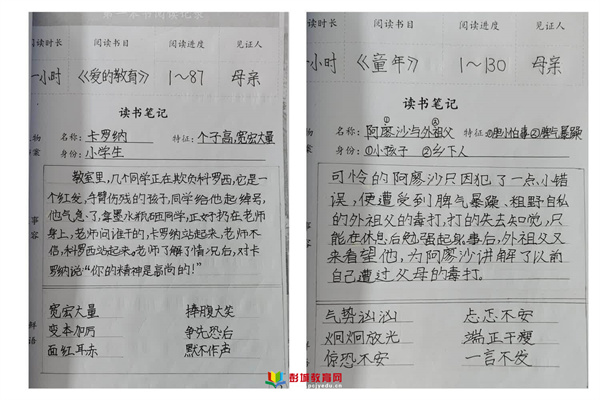 阅读时长 阅读书目 阅读进度 见证人
一小时 《爱的教育》 1～87 母亲
读书笔记
名称：卡罗纳 特征：个子高,宽宏大量
身份：小学生
教室里,几个同学正在欺负科罗西,它是
一个红发,手臂伤残的孩子,同学给他起绰号,
他气急了,拿墨水瓶砸同学,正好扔在老师
身上,老师问谁干的,卡罗纳站起来,老师不
信,科罗西站起来,老师了解了情况后,对卡
罗纳说“你的精神是高尚的!”
宽宏大量 捧腹大笑
变本加厉 争先恐后
面红耳赤 默不作声
阅读时长 阅读书目 阅读进度 见证人
一小时 《童年》 1～130 母亲
读书笔记
名称：①阿廖沙与②外祖父 特征：①胆小怕事②脾气暴躁
身份：①小孩子 ②乡下人
可怜的阿廖沙只因犯了一点小错
误,便遭受到脾气暴躁、粗野自私
的外祖父的毒打,打的失去知觉,只
能在休息后勉强起身,事后,外祖父又
来看望他,为阿廖沙讲解了以前
自己遭过父母的毒打。
气势汹汹 忐忑不安
炯炯放光 端正干瘦
惊恐不安 一言不发
彭城教育网
pcjyedu.cn